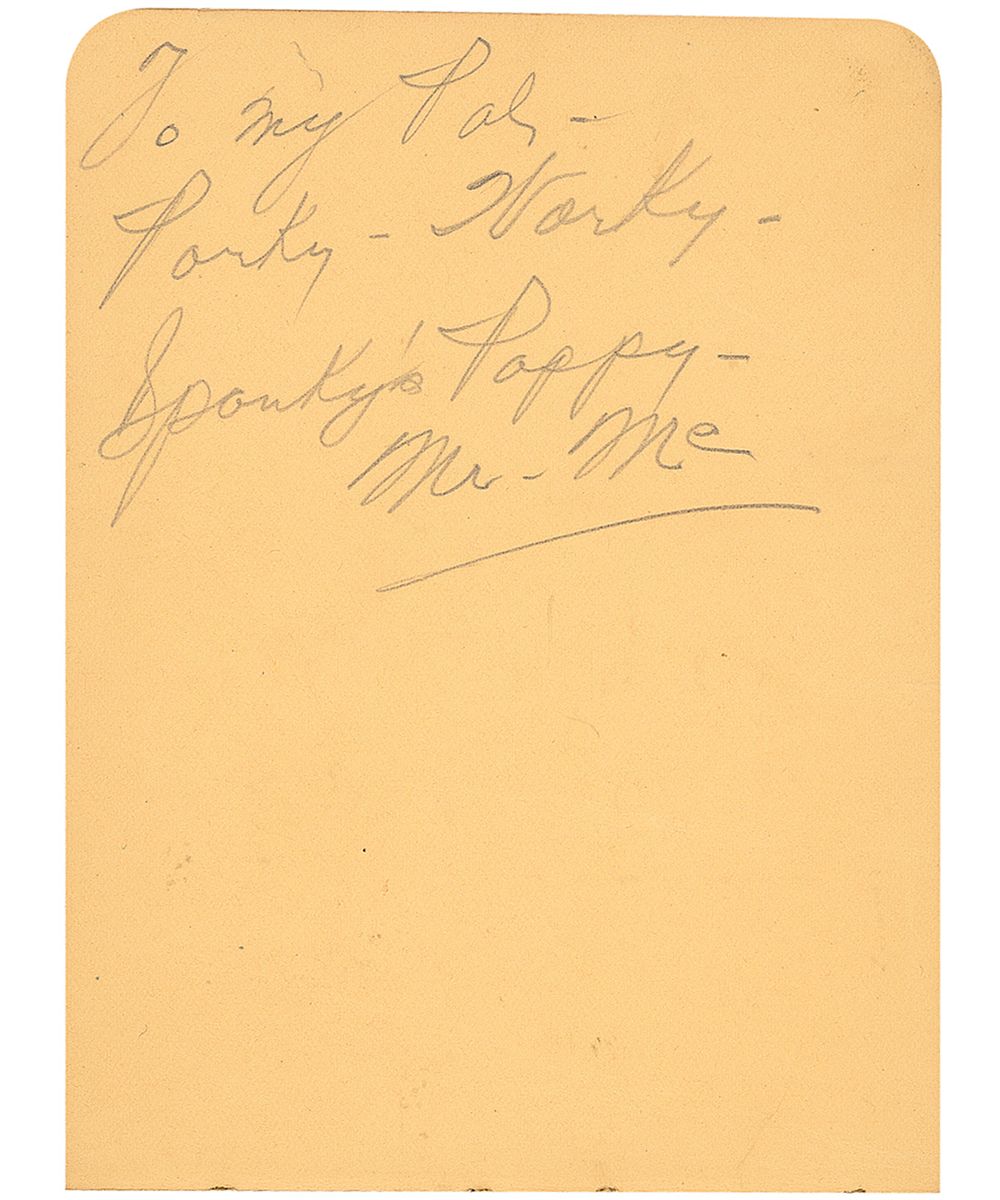 To my Pal, -
Porky - Worky -
Spanky's Pappy -
Mr - Mc